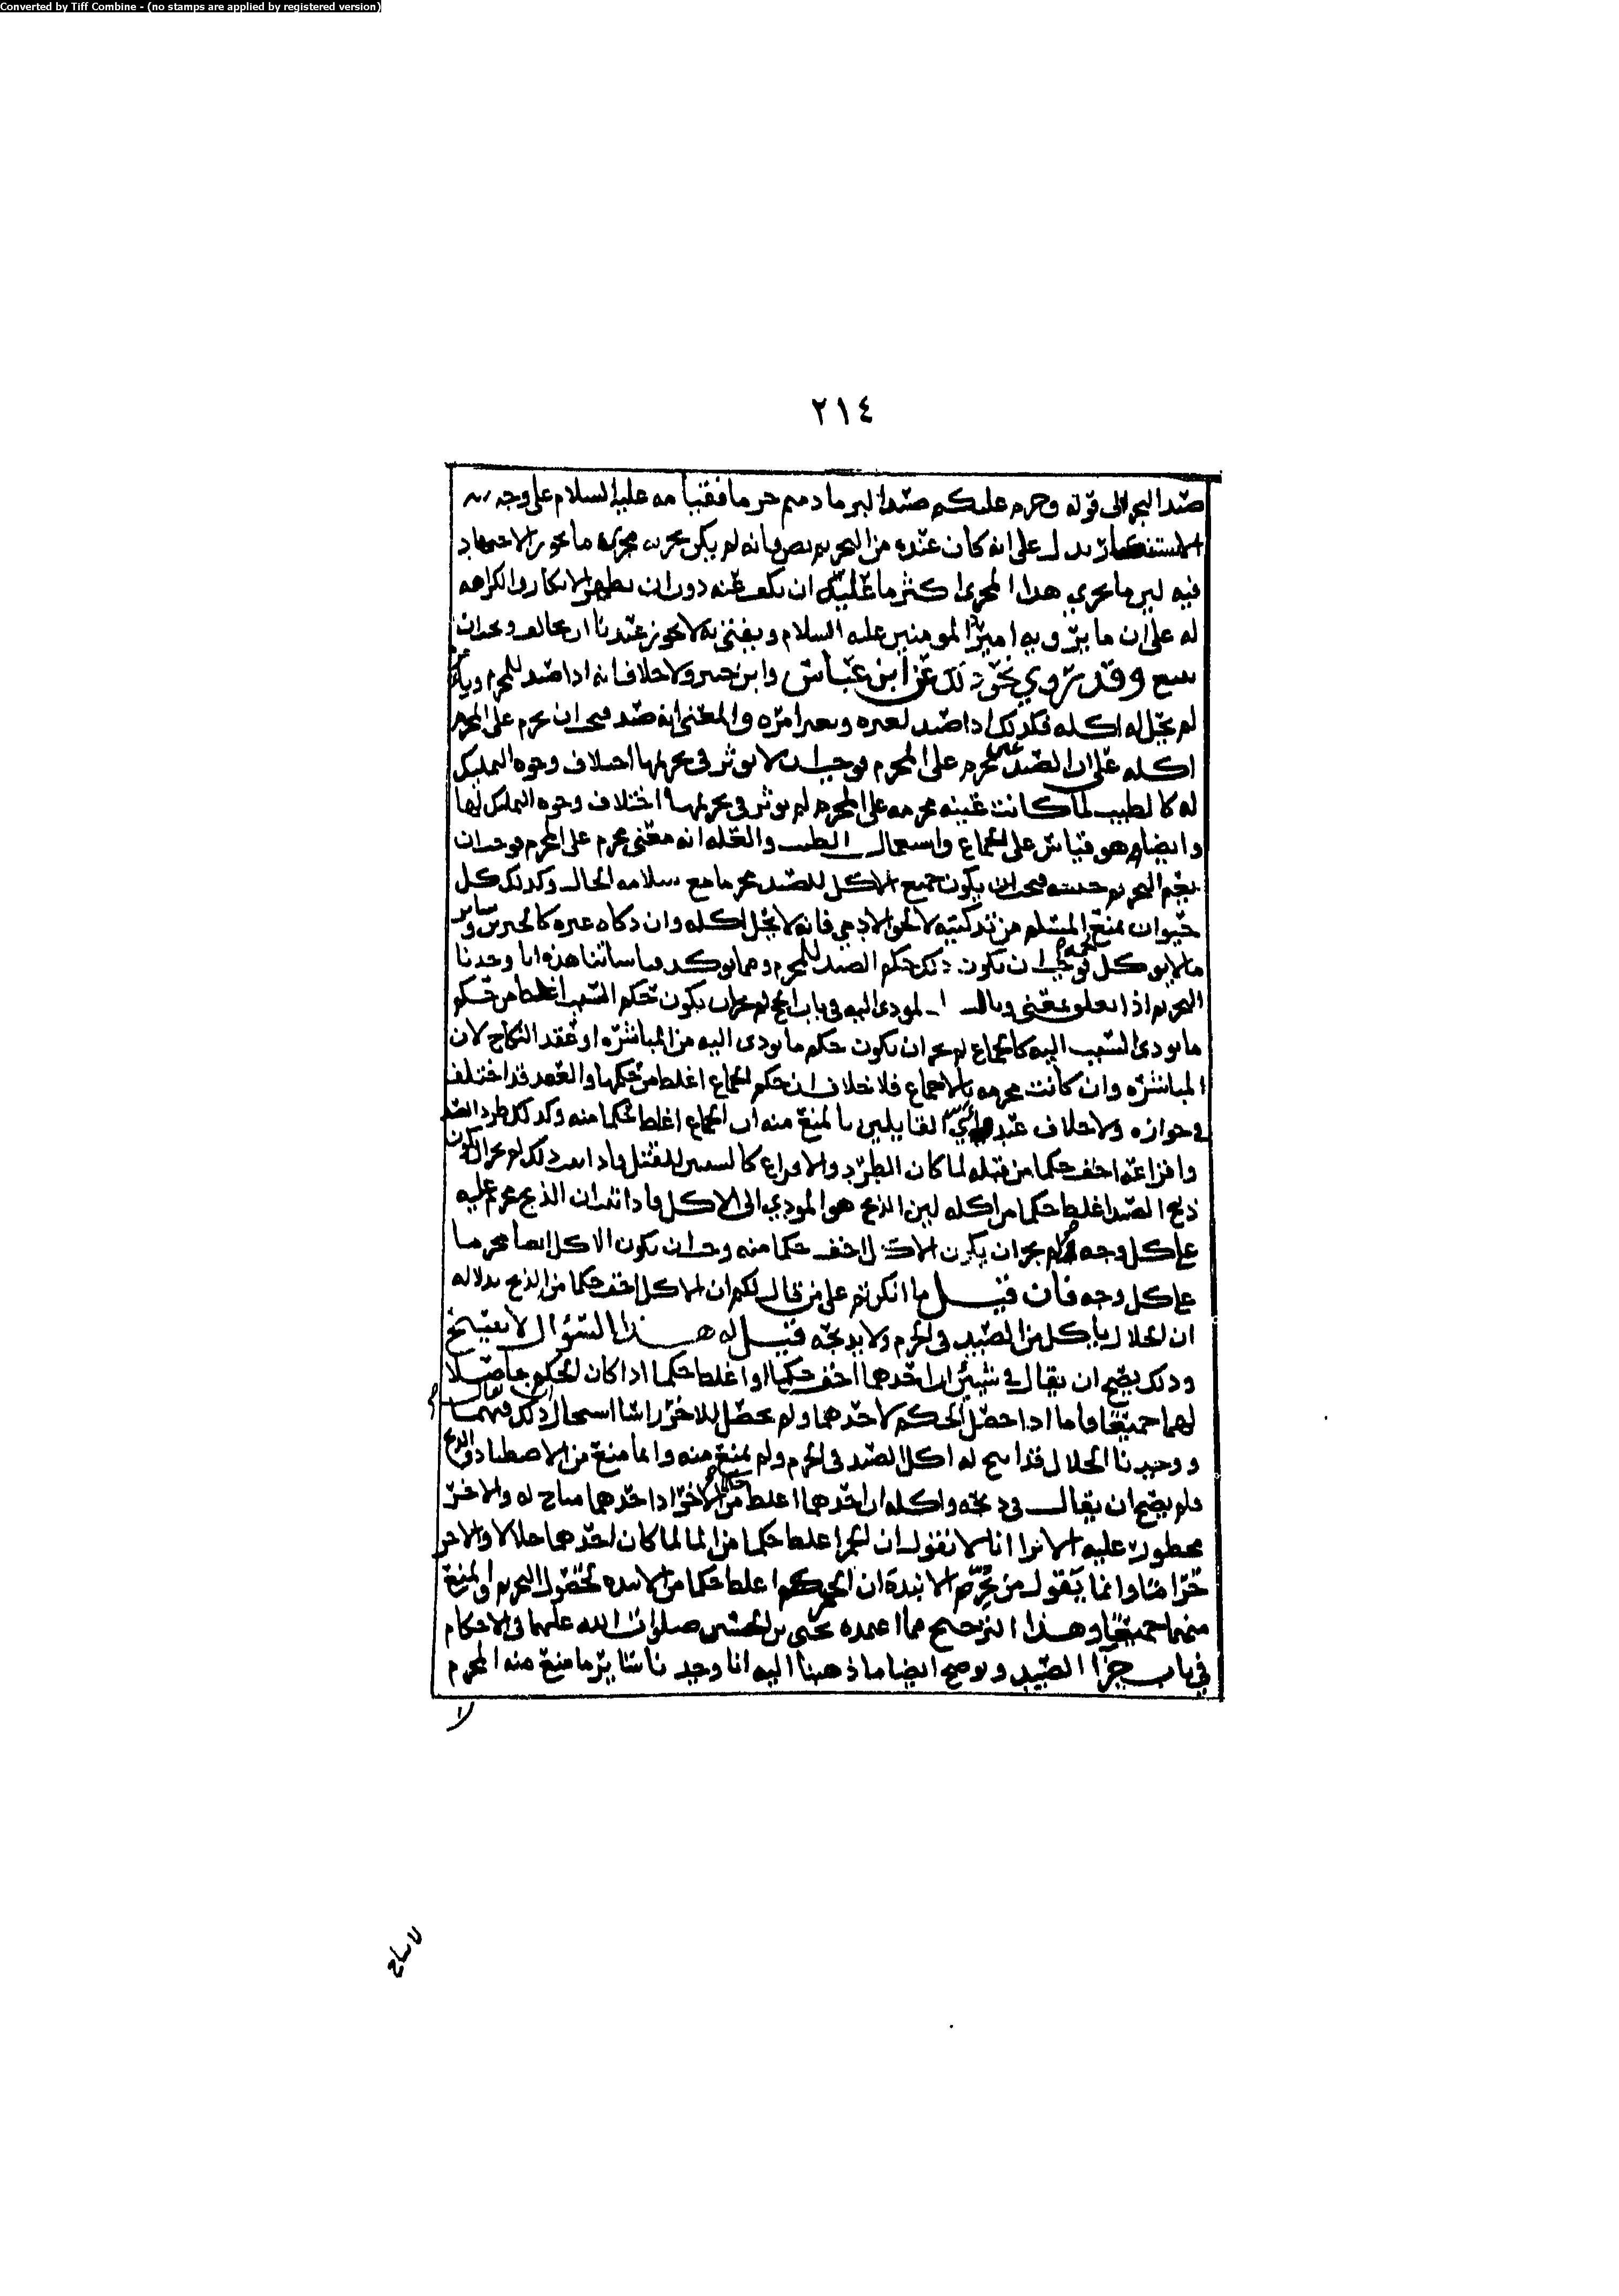 Converted by Tiff Combine - (no stamps are applied by registered version)
٢١٤
صيد البحر الى قوله وحرم عليكم صيد البر ما دمتم حرما فقيامه عليه السلام على وجه
الاستنكار يدل على انه كان عنده من التحريم نص وانه لم يكن يجريه مجرى ما يجوز الاجتهاد
فيه لان ما يجري هذا المجرى اكثر ما عليك ان تكف عنه دون ان يظهر الانكار والكراهه
له على ان ما يرويه امير المومنين عليه السلام ويفتي به لا يجوز عندنا ان يخالف ويجب ان
يتبع وقد روي نحو ذلك عن ابن عباس وابن جبير ولا خلاف انه اذا صيد للمحرم وبامره
لم يحل له اكله فكذلك اذا صيد لغيره وبغير امره والمعنى انه صيد فيجب ان يحرم على المحرم
اكله على ان الصيد محرم على المحرم فوجب ان لا يوثر في تحريمها اختلاف وجوه التمليك
له كالطيب لما كانت عينه محرمه على المحرم لم يوثر في تحريمها اختلاف وجوه التمليك لها
وايضا هو قياس على الجماع واستعمال الطيب والعله انه معنى محرم على المحرم فوجب ان
يعم التحريم جنسه فيجب ان يكون جميع الاكل للصيد محرما مع سلامه الحال وكذلك كل
حيوان يمنع المسلم من تذكيته لا لحق الادمي فانه لا يحل اكله وان ذكاه غيره كالخنزير وساير
ما لا يوكل لحمه فوجب ان يكون ذلك حكم الصيد للمحرم ومما يوكد قياساتنا هذه انا وجدنا
التحريم اذا تعلق بمعنى وبالسبب المودي اليه في باب الحج لم يجز ان يكون حكم السبب اغلظ من حكم
ما يودي السبب اليه كالجماع لم يجز ان يكون حكم ما يودي اليه من المباشره او عقد النكاح لان
المباشره وان كانت محرمه بالاجماع فلا خلاف ان حكم الجماع اغلظ من حكمها والعقد قد اختلف
في جوازه ولا خلاف عند القايلين بالمنع منه ان الجماع اغلظ حكما منه وكذلك طرد الصيد
وافزاعه اخف حكما من قتله لما كان الطرد والافزاع كالسبب للقتل فاذا ثبت ذلك لم يجز ان يكون
ذبح الصيد اغلظ حكما من اكله لان الذبح هو المودي الى الاكل فاذا ثبت ان الذبح محرم عليه
على كل وجه لم يجز ان يكون الاكل اخف حكما منه وجب ان يكون الاكل ايضا محرما
على كل وجه فان قيل ما انكرتم على من قال لكم ان الاكل اخف حكما من الذبح بدلاله
ان الحلال ياكل من الصيد في الحرم ولا يذبحه قيل له هذا السؤال لا يصح
وذلك يصح ان يقال في شيئين ان احدهما اخف حكما او اغلظ حكما اذا كان الحكم حاصلا
لهما جميعا فاما اذا حصل الحكم لاحدهما ولم يحصل للاخر راسا استحال ان يقال ذلك فيهما
ووجدنا الحلال قد ابيح له اكل الصيد في الحرم ولم يمنع منه وانما منع من الاصطياد والذبح
فلم يصح ان يقال في ذبحه واكله ان احدهما اغلظ حكما من الاخر اذ احدهما مباح له والاخر
محظور عليه الا ترا انا لا نقول ان الخمر اغلظ حكما من الما لما كان احدهما حلالا والاخر
حراما وانما يقول من يحرم الانبذة ان الخمر اغلظ حكما من الانبذه لحصول التحريم والمنع
منهما جميعا وهذا الترجيح مما اعتمده يحيى بن الحسين صلوات الله عليهما في الاحكام
في باب جزا الصيد ويوضح ايضا ما ذهبنا اليه انا وجدنا ساير ما منع منه المحرم
لا